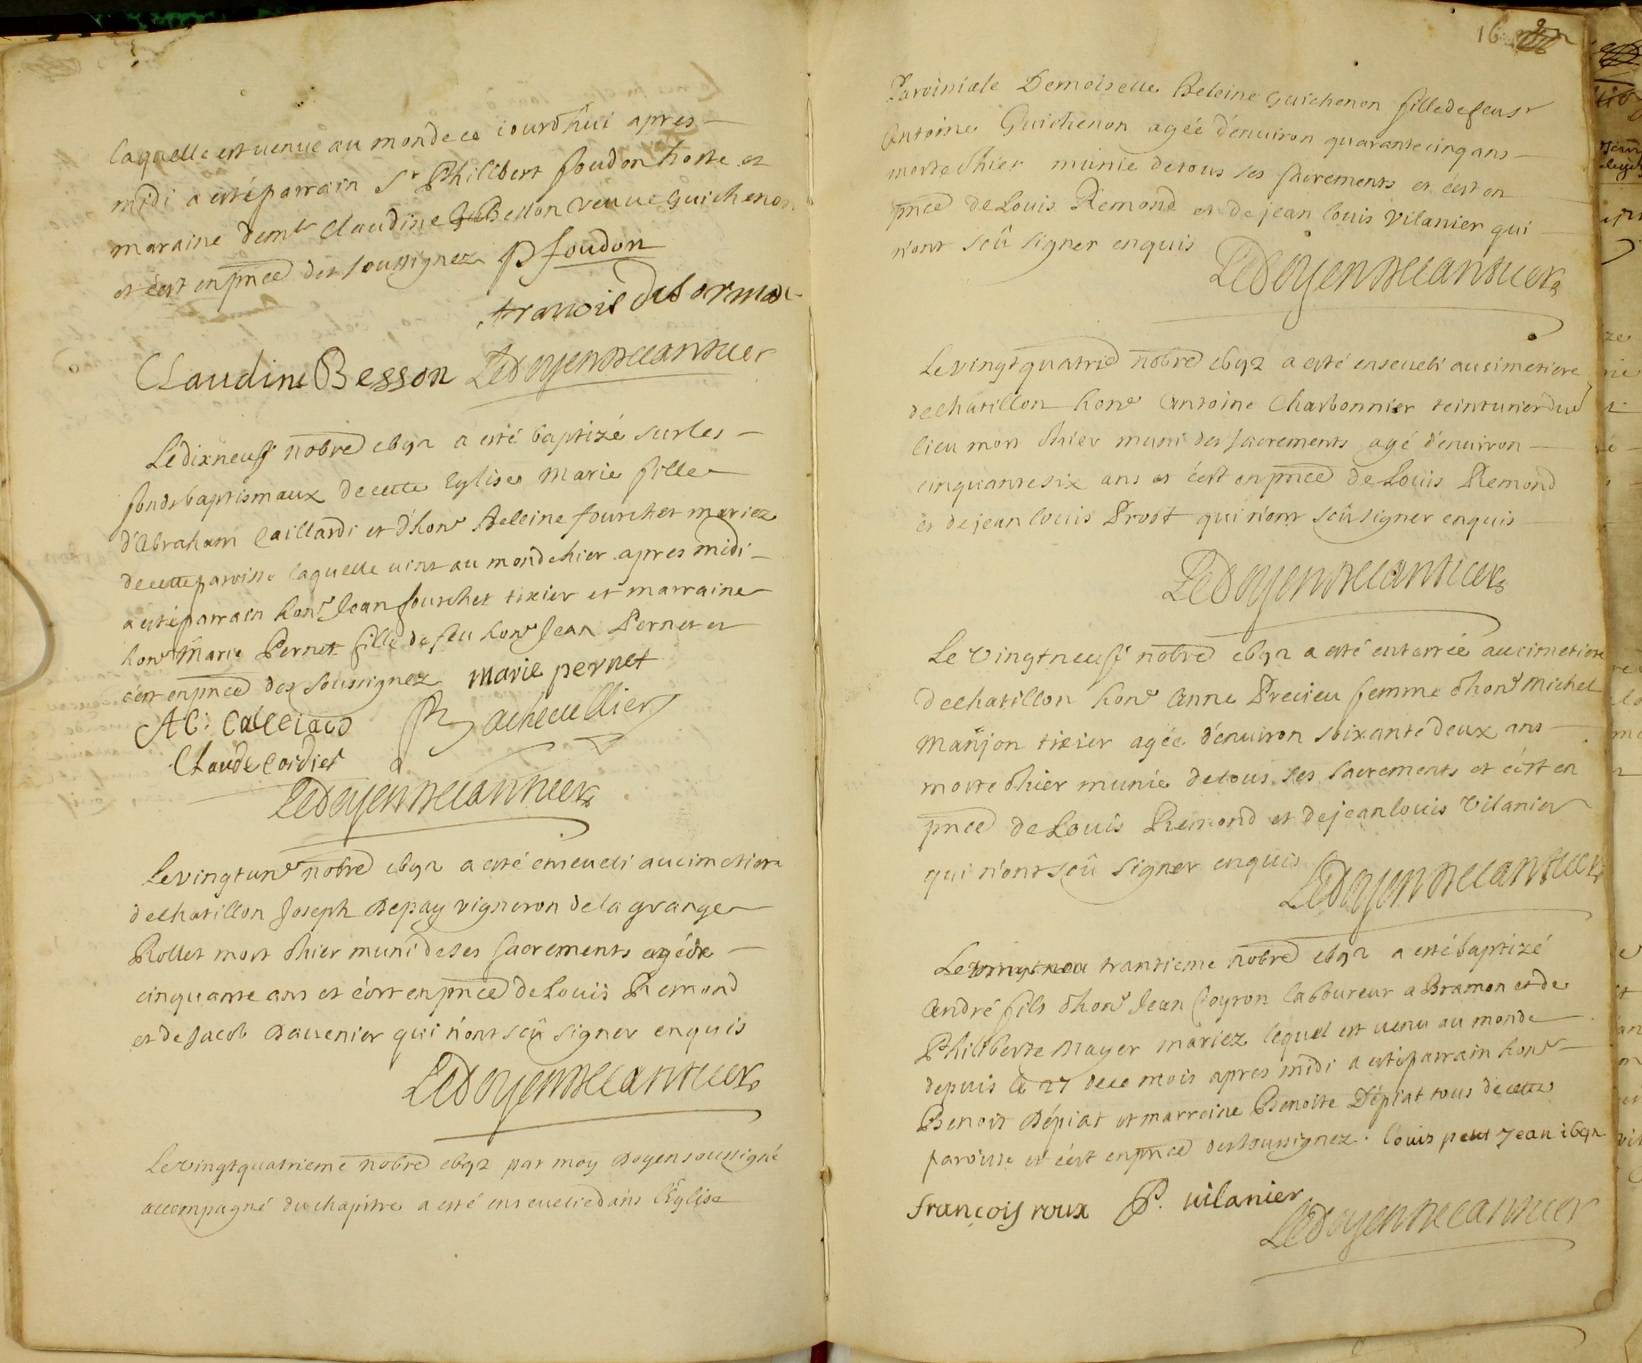 laquelle est venue au monde ce iourdhui apres
midi a esté parrain Sr Philibert foudon hoste et
maraine demlle Claudine Besson veuve Guichenon
et c'est en pnce des soussignez P foudon
francois delorme
Claudine Besson Ledoyen
Le dixneuf nobre 1692 a esté baptizé sur les
fonds baptismaux de cette Eglise Marie fille
d'Abraham Caillardi et d'hone Heleine fourchet mariez
de cette paroisse laquelle vint au monde hier apres midi
a esté parrain hone Jean fourchet tixier et marraine
hone Marie Pernet fille de feu hone Jean Pernet et
c'est en pnce des soussignez marie pernet
Claude Cordier
Ledoyen
Le vingtune nobre 1692 a esté enseveli au cimetiere
de chatillon Joseph Depay vigneron de la grange
Rollet mort d'hier muni de ses sacrements agé de
cinquante ans et c'est en pnce de Louis Remond
et de Jacob Davenier qui n'ont sçû signer enquis
Ledoyen
Le vingtquatrieme nobre 1692 par moy Doyen soussigné
accompagné du chapitre a esté ensevelie dans l'Eglise
16
Paroissiale Demoiselle Heleine Guichenon fille de feu sr
Antoine Guichenon agée d'environ quarante cinq ans
morte d'hier munie de tous ses sacrements et c'est en
pnce de Louis Remond et de jean louis Vilanier qui
n'ont sçû signer enquis
Ledoyen
Le vingtquatrie nobre 1692 a esté enseveli au cimetiere
de chatillon hone Antoine Charbonnier teinturier dud
lieu mort d'hier muni des sacrements agé d'environ
cinquante six ans et c'est en pnce de Louis Remond
et de jean louis Prost qui n'ont sçû signer enquis
Ledoyen
Le vingtneuf nobre 1692 a esté enterrée au cimetiere
de chatillon hone Anne Precieu femme d'hone Michel
Manjon tixier agée d'environ soixante deux ans
morte d'hier munie de tous ses sacrements et c'est en
pnce de Louis Remond et de jean louis Vilanier
qui n'ont sçû signer enquis
Ledoyen
Le trantieme nobre 1692 a esté baptizé
André fils d'hone Jean Coyron laboureur a Bramon et de
Philiberte Mayer mariez lequel est venu au monde
depuis le 27 de ce mois apres midi a esté parrain hone
Benoit Dépiat et marreine Benoite Dépiat tous de cette
paroisse et c'est en pnce des soussignez. louis petit Jean 1692
françois roux P. vilanier
Ledoyen